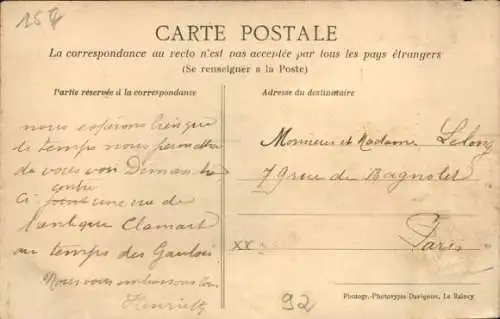 15f
CARTE POSTALE
La correspondance au recto n'est pas acceptée par tous les pays étrangers
(Se renseigner a la Poste)
Partie réservée à la correspondance
nous espérons bien que
le temps nous permettra
de vous voir Dimanche
contre
Ci une vue de
l'antique Clamart
au temps des Gaulois
Nous vous embrassons tous
Henriette
Adresse du destinataire
Monsieur et Madame Lelong
79 rue de Bagnolet
Paris
XX
92
Photogr.-Phototypie Davignon, Le Raincy